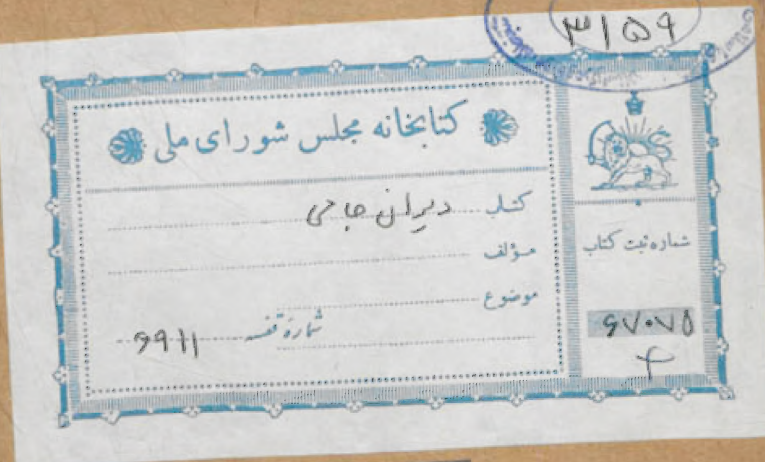 ۳۱۵۹
کتابخانه مجلس شورای ملی
کتاب دیوان جامی
مؤلف
موضوع
شماره قفسه ۶۹۱۱
شماره ثبت کتاب
۶۷۰۷۵
۴